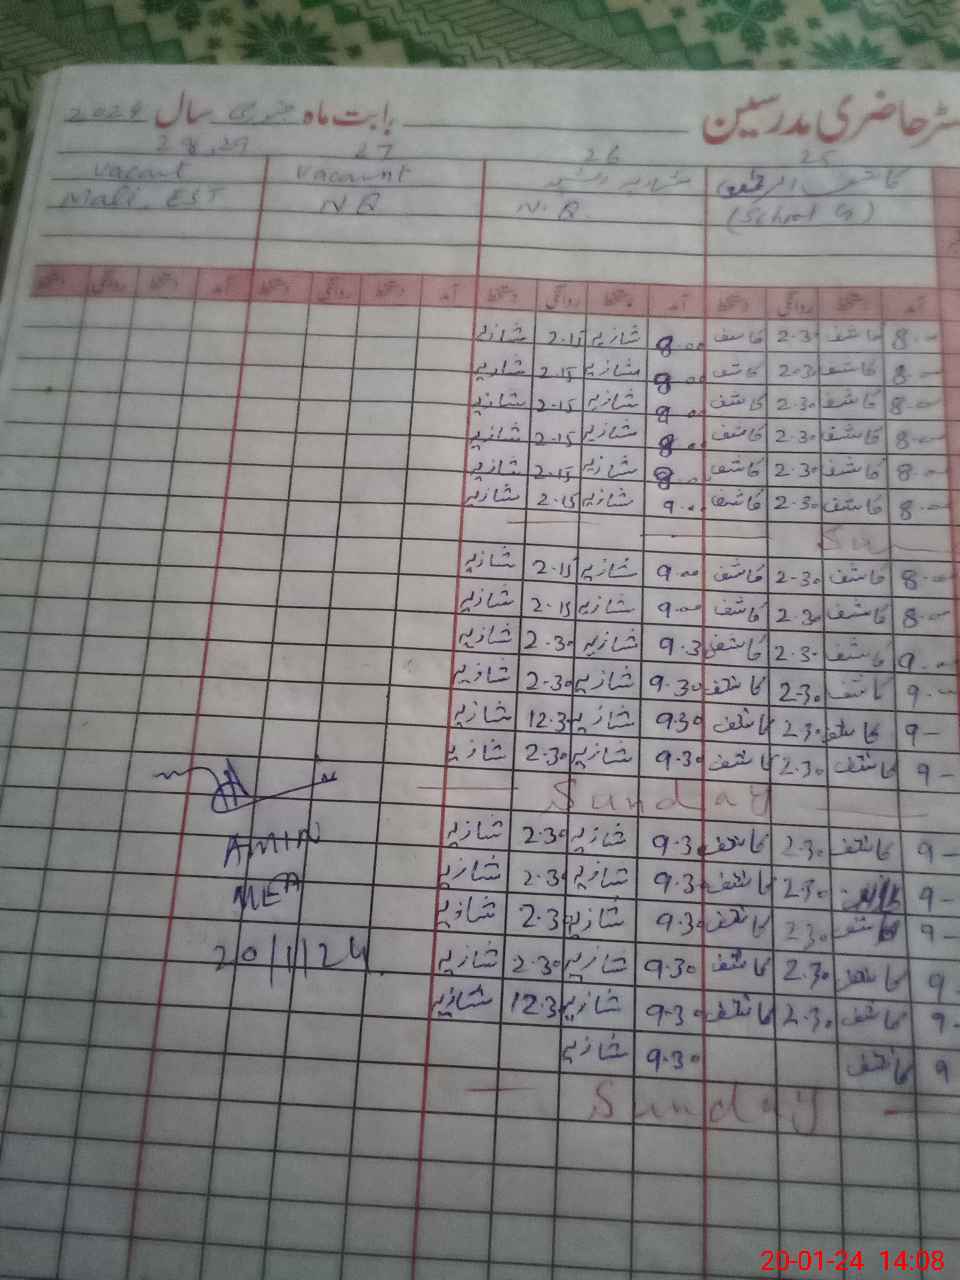 سٹر حاضری مدرسین بابت ماہ جنوری سال 2024
25 26 27 28,29
کاشف شازیہ vacaunt vacant
(School G) N.Q. N Q Mali. EST
آمد دستخط روانگی دستخط آمد دستخط روانگی دستخط آمد دستخط روانگی دستخط آمد دستخط روانگی دستخط
8.00 کاشف 2.30 کاشف 8.00 شازیہ 2.15 شازیہ
8.00 کاشف 2.30 کاشف 8.00 شازیہ 2.15 شازیہ
8.00 کاشف 2.30 کاشف 8.00 شازیہ 2.15 شازیہ
8.00 کاشف 2.30 کاشف 8.00 شازیہ 2.15 شازیہ
8.00 کاشف 2.30 کاشف 8.00 شازیہ 2.15 شازیہ
8.00 کاشف 2.30 کاشف 9.00 شازیہ 2.15 شازیہ
Sun
8.00 کاشف 2.30 کاشف 9.00 شازیہ 2.15 شازیہ
8.00 کاشف 2.30 کاشف 9.00 شازیہ 2.15 شازیہ
9.00 کاشف 2.30 کاشف 9.30 شازیہ 2.30 شازیہ
9.00 کاشف 2.30 کاشف 9.30 شازیہ 2.30 شازیہ
9- کاشف 2.30 کاشف 9.30 شازیہ 12.3 شازیہ
9- کاشف 2.30 کاشف 9.30 شازیہ 2.30 شازیہ
Sunday
9- کاشف 2.30 کاشف 9.30 شازیہ 2.30 شازیہ
9- 2.30 کاشف 9.30 شازیہ 2.30 شازیہ
9- کاشف 2.30 کاشف 9.30 شازیہ 2.30 شازیہ
9- کاشف 2.30 کاشف 9.30 شازیہ 2.30 شازیہ
9- کاشف 2.30 کاشف 9.30 شازیہ 12.3 شازیہ
9 کاشف 9.30 شازیہ
Sunday
AMIN
MEA
20/1/24
20-01-24 14:08